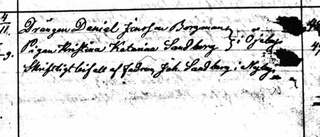 4/11. Drängen Daniel Jonsson Borgman
Pigan Kristina Katarina Sandberg } i Öjeby
Skriftligt bifall af fadren, Joh. Sandberg i